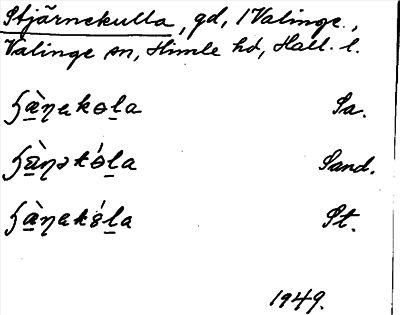 Stjärnekulla, gd, 1 Valinge.,
Valinge sn, Himle hd, Hall. l.
Sa.
Sand.
St.
1949.